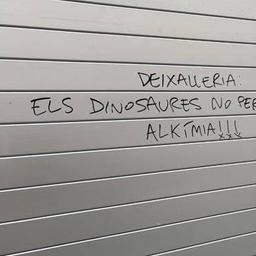 DEIXALLERIA:
ELS DINOSAURES NO PER
ALKÍMIA!!!